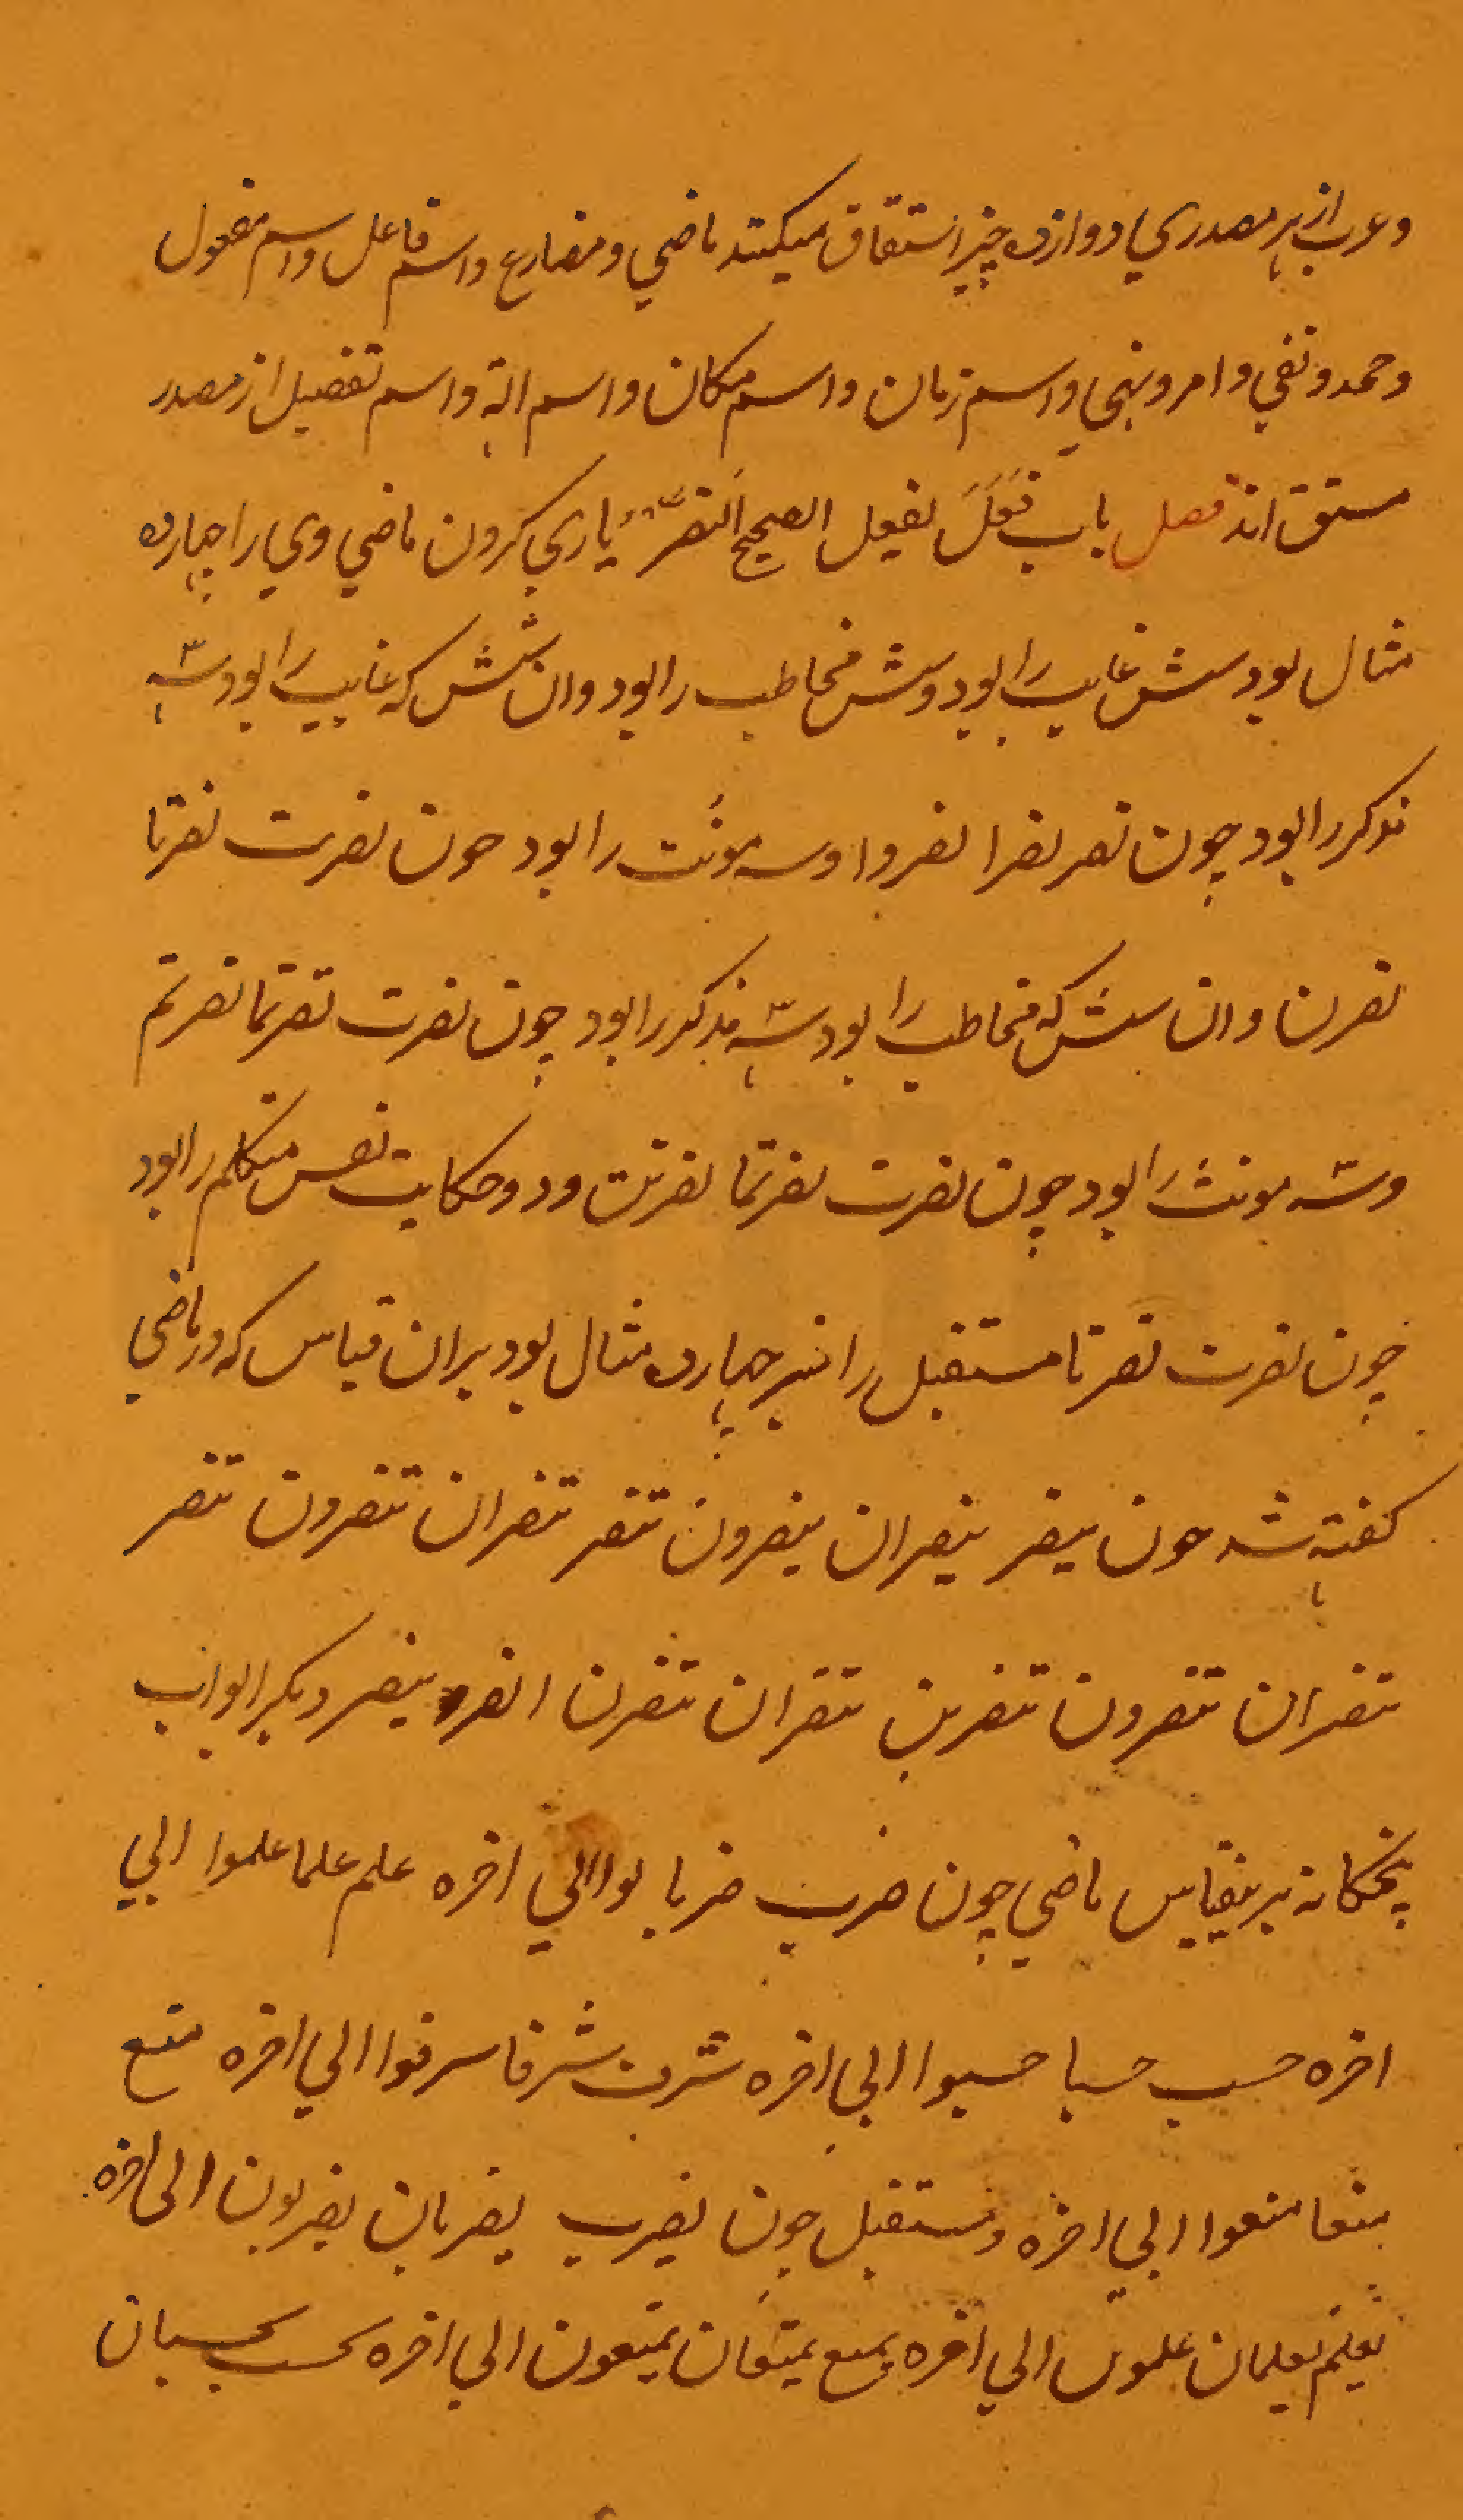 وعرب از هر مصدري دوازده چیز اشتقاق میکنند ماضي ومضارع واسم فاعل واسم مفعول
وجحد ونفي وامر ونهي واسم زمان واسم مکان واسم الة واسم تفضیل از مصدر
مشتق اند فصل باب فَعَلَ یفعل الصحیح اَلنصر یاري کردن ماضي وي را چهارده
مثال بود شش غایب را بود وشش مخاطب را بود وان شش که غایب را بود سه
مذکر را بود چون نصر نصرا نصروا وسه مونث را بود چون نصرت نصرتا
نصرن وان شش که مخاطب را بود سه مذکر را بود چون نصرت نصرتما نصرتم
وسه مونث را بود چون نصرت نصرتما نصرتن ودو حکایت نفس متکلم را بود
چون نصرت نصرنا مستقبل را نیز چهارده مثال بود بران قیاس که در ماضي
کفته شد چون ینصر ینصران ینصرون تنصر تنصران تنصرون تنصر
تنصران تنصرون تنصرین تنصران تنصرن انصر ننصر ودیکر ابواب
پنجکانه برینقیاس ماضي چون ضرب ضربا بوا الي اخره علم علما علموا الي
اخره حسب حسبا حسبوا الي اخره شرف شرفا شرفوا الي اخره منع
منعا منعوا الي اخره ومستقبل چون یضرب یضربان یضربون الي اخره
یعلم یعلمان علمون الي اخره یمنع یمنعان یمنعون الي اخره یحسب یحسبان